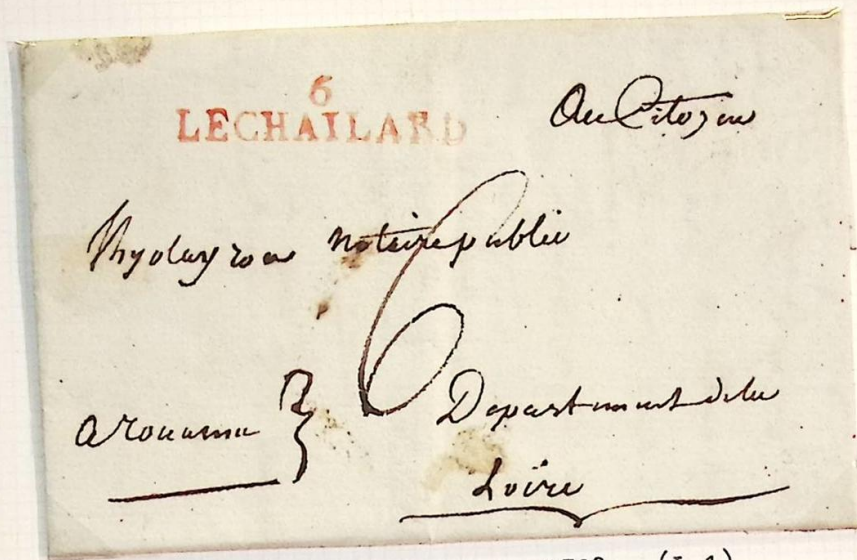 6
LECHAILARD
Au Citozen
notaire public
6
a rouanne
Departement dela
Loire